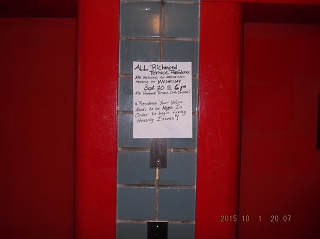 ALL Richmond
Terrace Residents
ARE Welcome to attend our
meeting on WEDNESDAY
Sept 30 @ 6pm
* Residents Your Voice
Needs to be Heard In
Order to begin fixing
Housing Issues!
2015 10 1 20 07